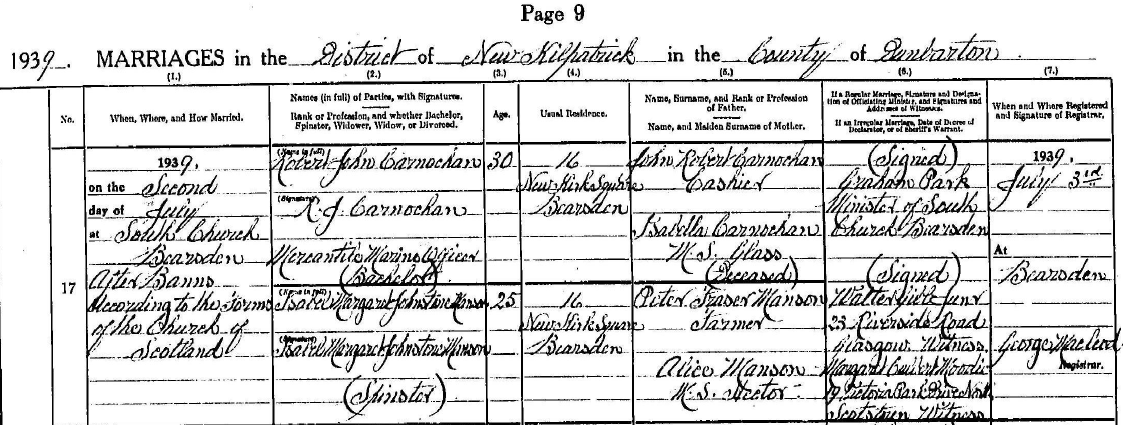 Page 9
1939. MARRIAGES in the District of New Kilpatrick in the County of Dunbarton.
(1.) (2.) (3.) (4.) (5.) (6.) (7.)
No.
When, Where, and How Married.
Names (in full) of Parties, with Signatures.
Rank or Profession, and whether Bachelor,
Spinster, Widower, Widow, or Divorced.
Age.
Usual Residence.
Name, Surname, and Rank or Profession
of Father.
Name, and Maiden Surname of Mother.
If a Regular Marriage, Signature and Designa-
tion of Officiating Minister, and Signatures and
Addresses of Witnesses.
If an Irregular Marriage, Date of Decree of
Declarator, or of Sheriff's Warrant.
When and Where Registered
and Signature of Registrar.
17
1939.
on the Second
day of July
at South Church
Bearsden
After Banns
According to the Forms
of the Church of
Scotland
(Name in full)
Robert John Carnochan
(Signature)
R. J. Carnochan
Mercantile Marine Officer
(Bachelor)
30
16
New Kirk Square
Bearsden
John Robert Carnochan
Cashier
Isabella Carnochan
M. S. Glass
(Deceased)
(Name in full)
Isabel Margaret Johnstone Manson
(Signature)
Isabel Margaret Johnstone Manson
(Spinster)
25
16
New Kirk Square
Bearsden
Peter Fraser Manson
Farmer
Alice Manson
M. S. Hector
(Signed)
Graham Park
Minister of South
Church Bearsden
(Signed)
Walter junr
23 Riverside Road
Glasgow Witness
Margaret Moodie
Victoria Park Drive North
Scotstoun Witness
1939.
July 3rd
At
Bearsden
George Macleod
Registrar.